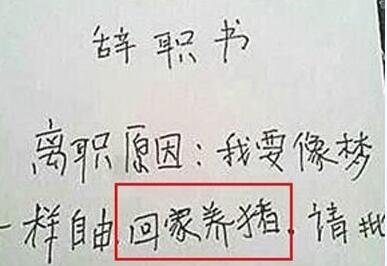 辞职书
离职原因:我要像梦
一样自由.回家养猪.请批